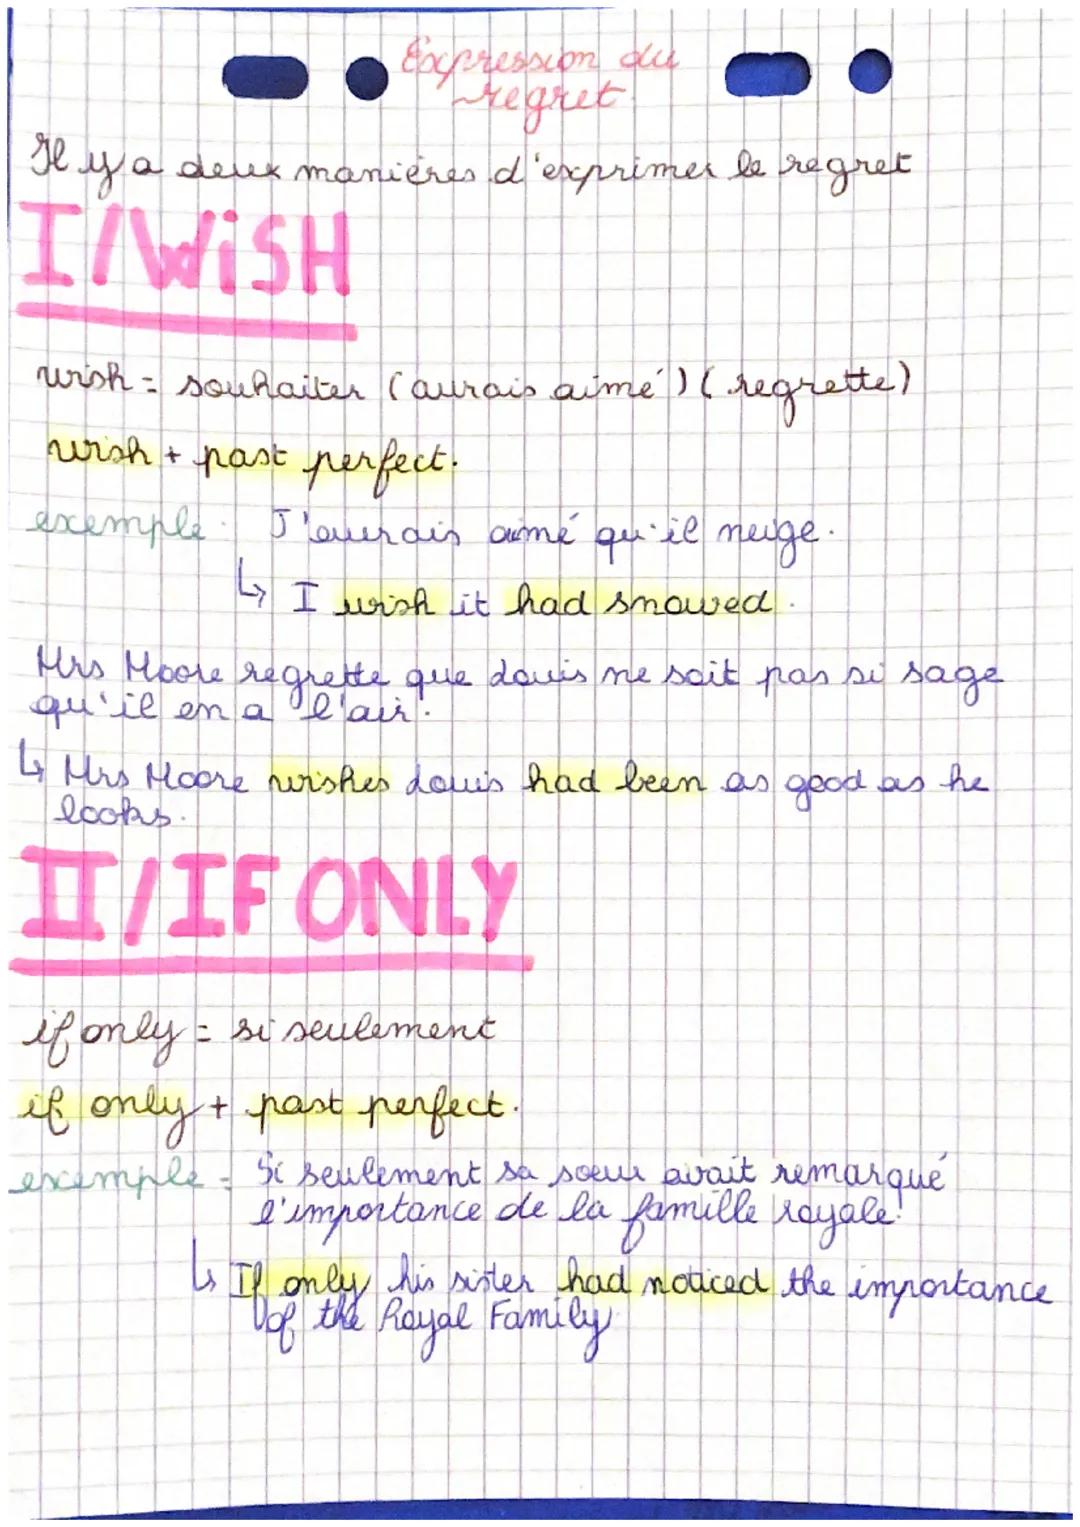 Expression du
regret
Il y a deux manières d'exprimer le regret
I/WiSH
wish = souhaiter (aurais aimé) (regrette)
wish + past perfect.
exemple. J'aurais aimé qu'il neige.
↳ I wish it had snowed.
Mrs Moore regrette que Louis ne soit pas si sage
qu'il en a l'air.
↳ Mrs Moore wishes Louis had been as good as he
looks.
II/IF ONLY
if only = si seulement
if only + past perfect.
exemple = Si seulement sa soeur avait remarqué
l'importance de la famille royale!
↳ If only his sister had noticed the importance
of the Royal Family